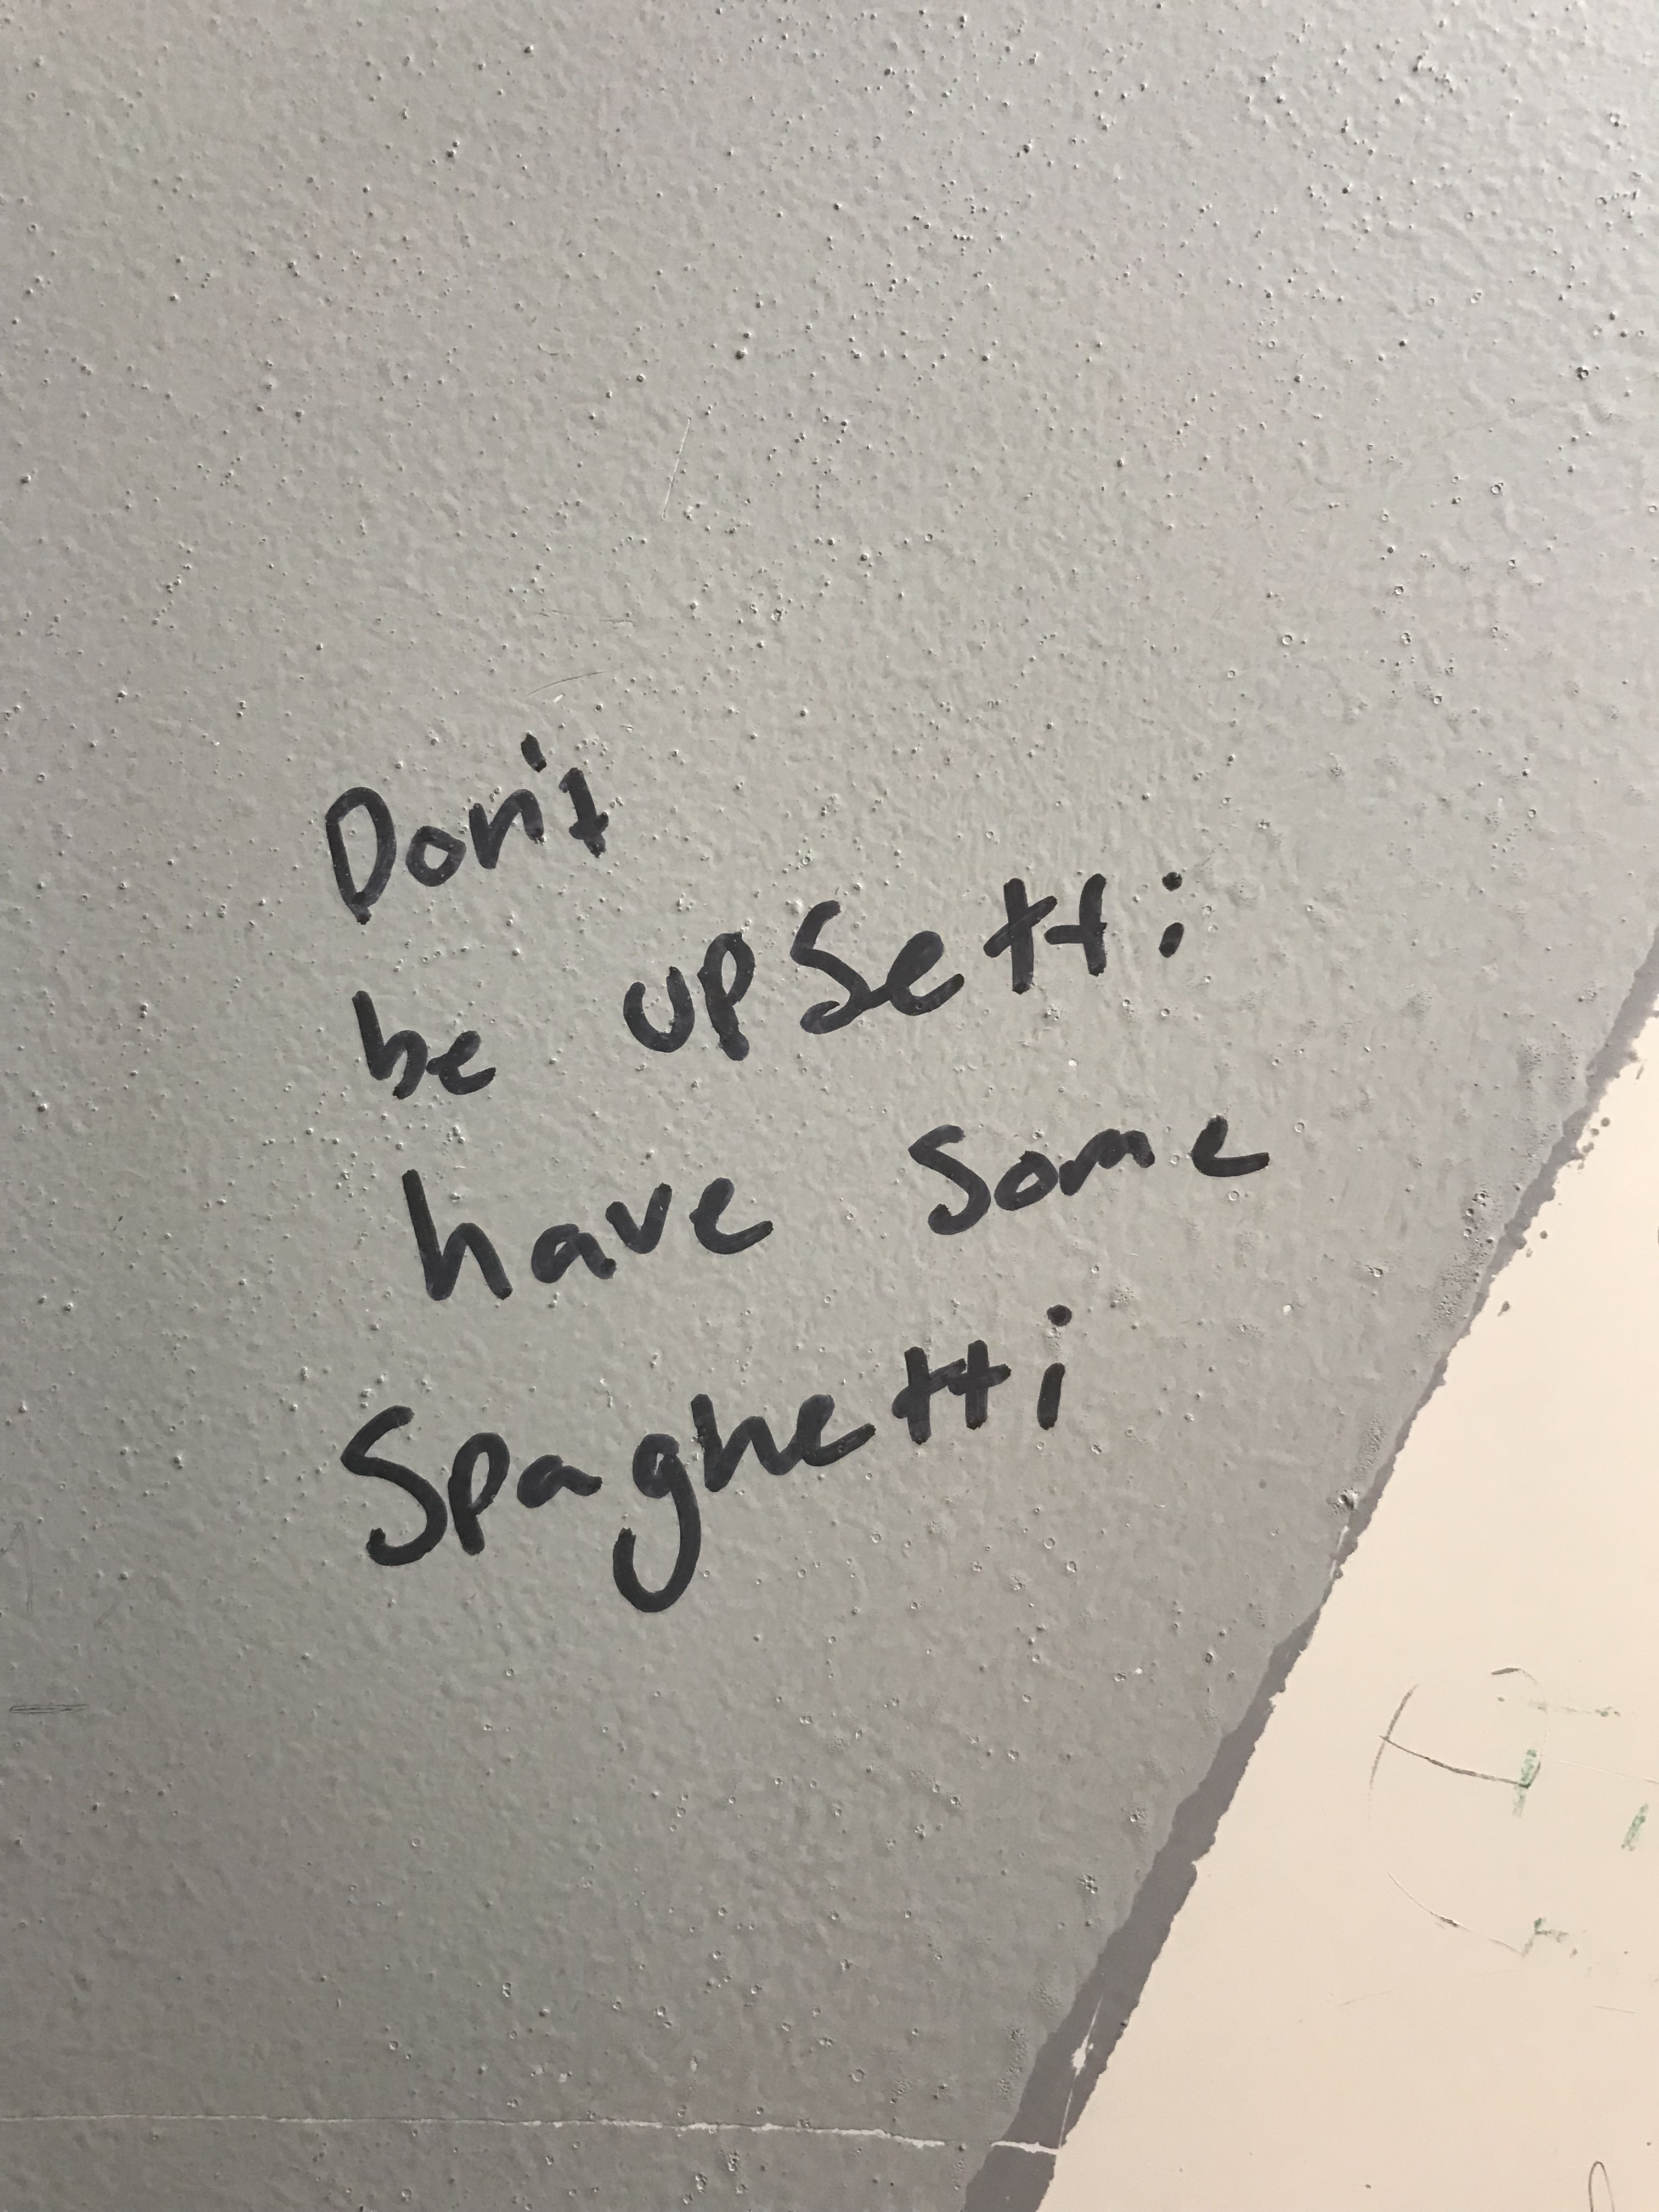 Don't
be upsetti
have some
Spaghetti